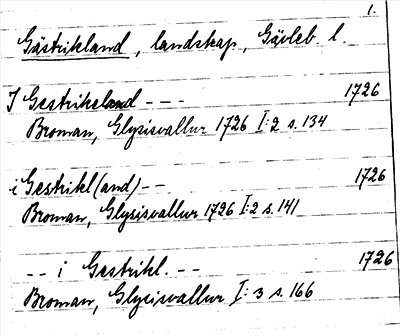 1.
Gästrikland, landskap, Gävleb. l.
I Gestrikeland --- 1726
Broman, Glysisvallur 1726 I:2 s. 134
i Gestrikl(and) -- 1726
Broman, Glysisvallur 1726 I:2 s. 141
-- i Gestrikl. -- 1726
Broman, Glysisvallur I:3 s. 166